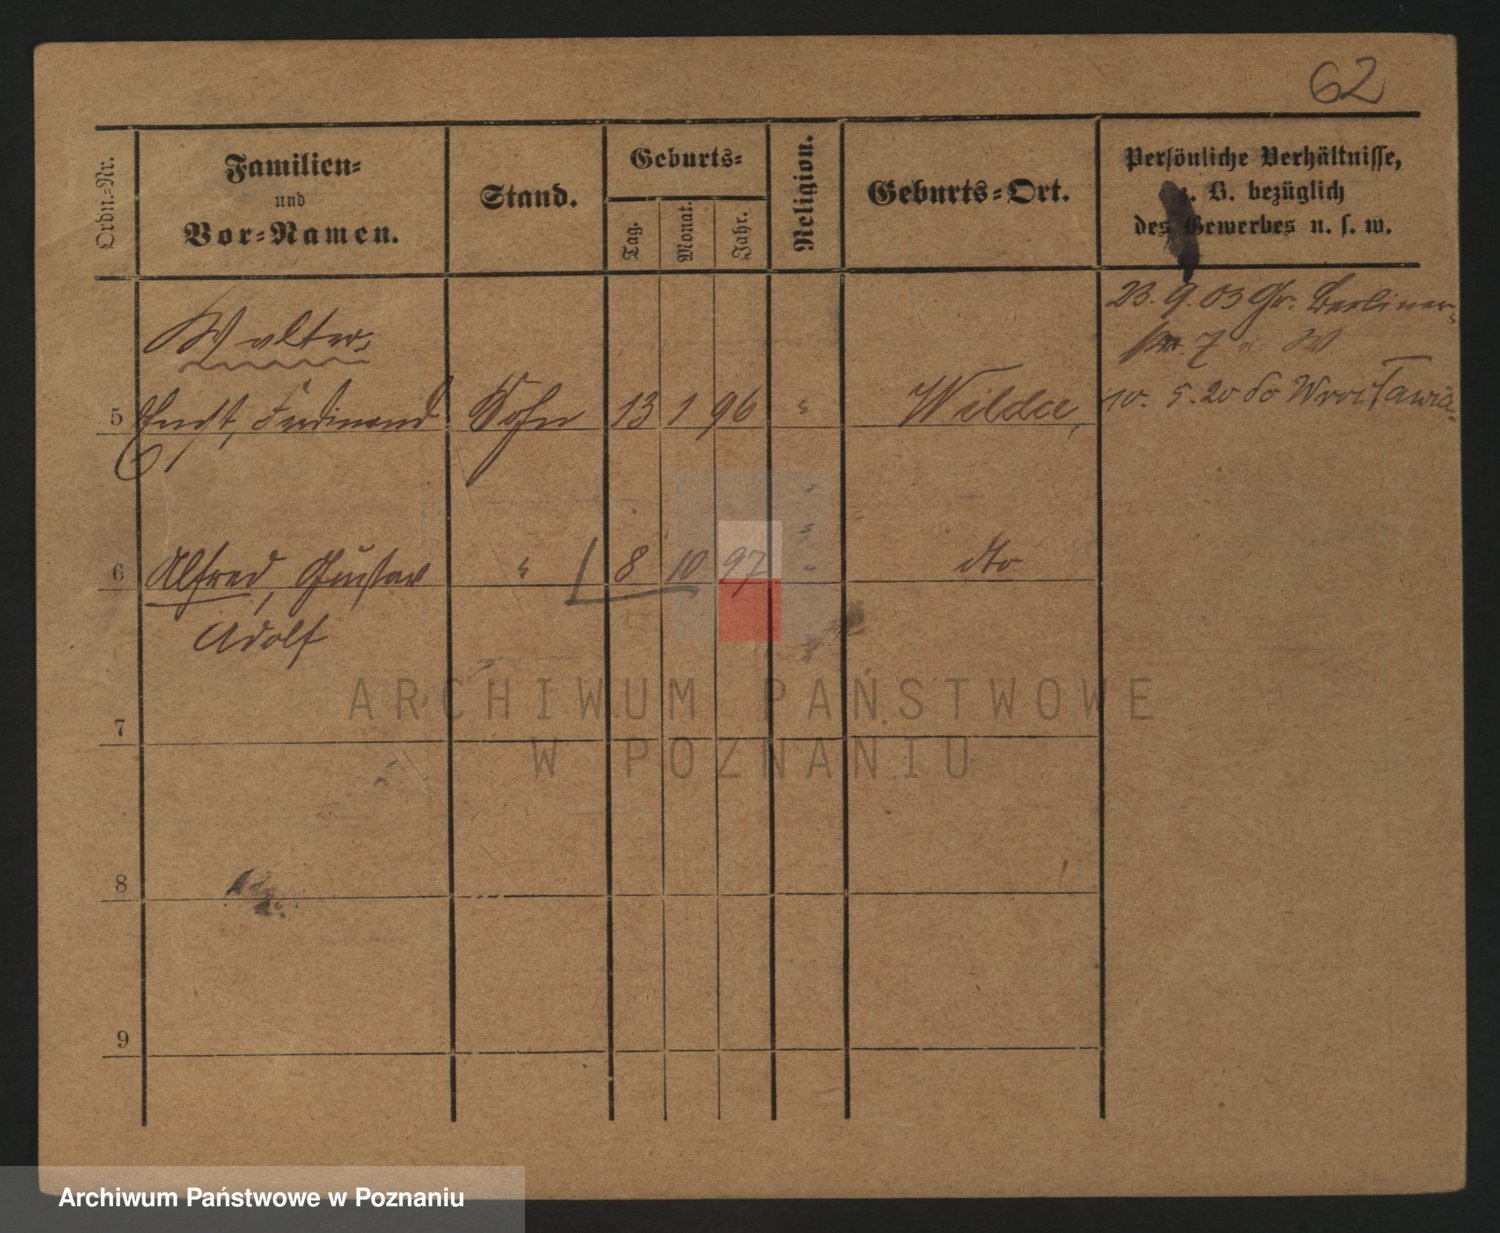 62
Ordn.-Nr.
Familien-
und
Vor-Namen.
Stand.
Geburts-
Tag.
Monat.
Jahr.
Religion.
Geburts-Ort.
Persönliche Verhältnisse,
z. B. bezüglich
des Gewerbes u. s. w.
23. 9. 03 Gr. Berliner-
7
Walter
10. 5. 20 do Wrocławia
5 Ernst, Ferdinand Sohn 13 1 96 " Wilda,
6 Alfred, Gustav " 8 10 97 " dto
Adolf
7
8
9
ARCHIWUM PAŃSTWOWE
W POZNANIU
Archiwum Państwowe w Poznaniu